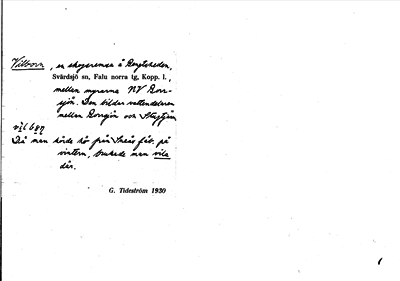 Vilborn, en skogsremsa å Bergsheden,
Svärdsjö sn, Falu norra tg, Kopp. l.,
mellan myrarna NV Borr-
sjön. Den bildar vattendelaren
mellan Borrsjön och
Då man körde hö från fäb. på
vintern, brukade man vila
där.
G. Tideström 1930